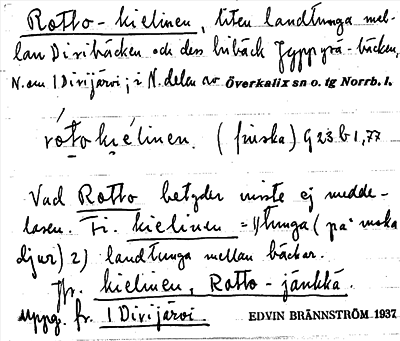 Rotto-kielinen, liten landtunga mel-
lan Diribäcken och dess bibäck Jyppyrä-bäcken,
N. om 1 Dirijärvi; i N. delen av Överkalix sn o. tg Norrb. l.
rótokiélinen. (finska) G 23 b 1,77
Vad Rotto betyder visste ej medde-
laren. Fi. kielinen = 1) tunga (på nska
djur) 2) landtunga mellan bäckar.
Jfr. kielinen, Rotto-jänkkä.
Uppg. fr. 1 Dirijärvi. EDVIN BRÄNNSTRÖM 1937